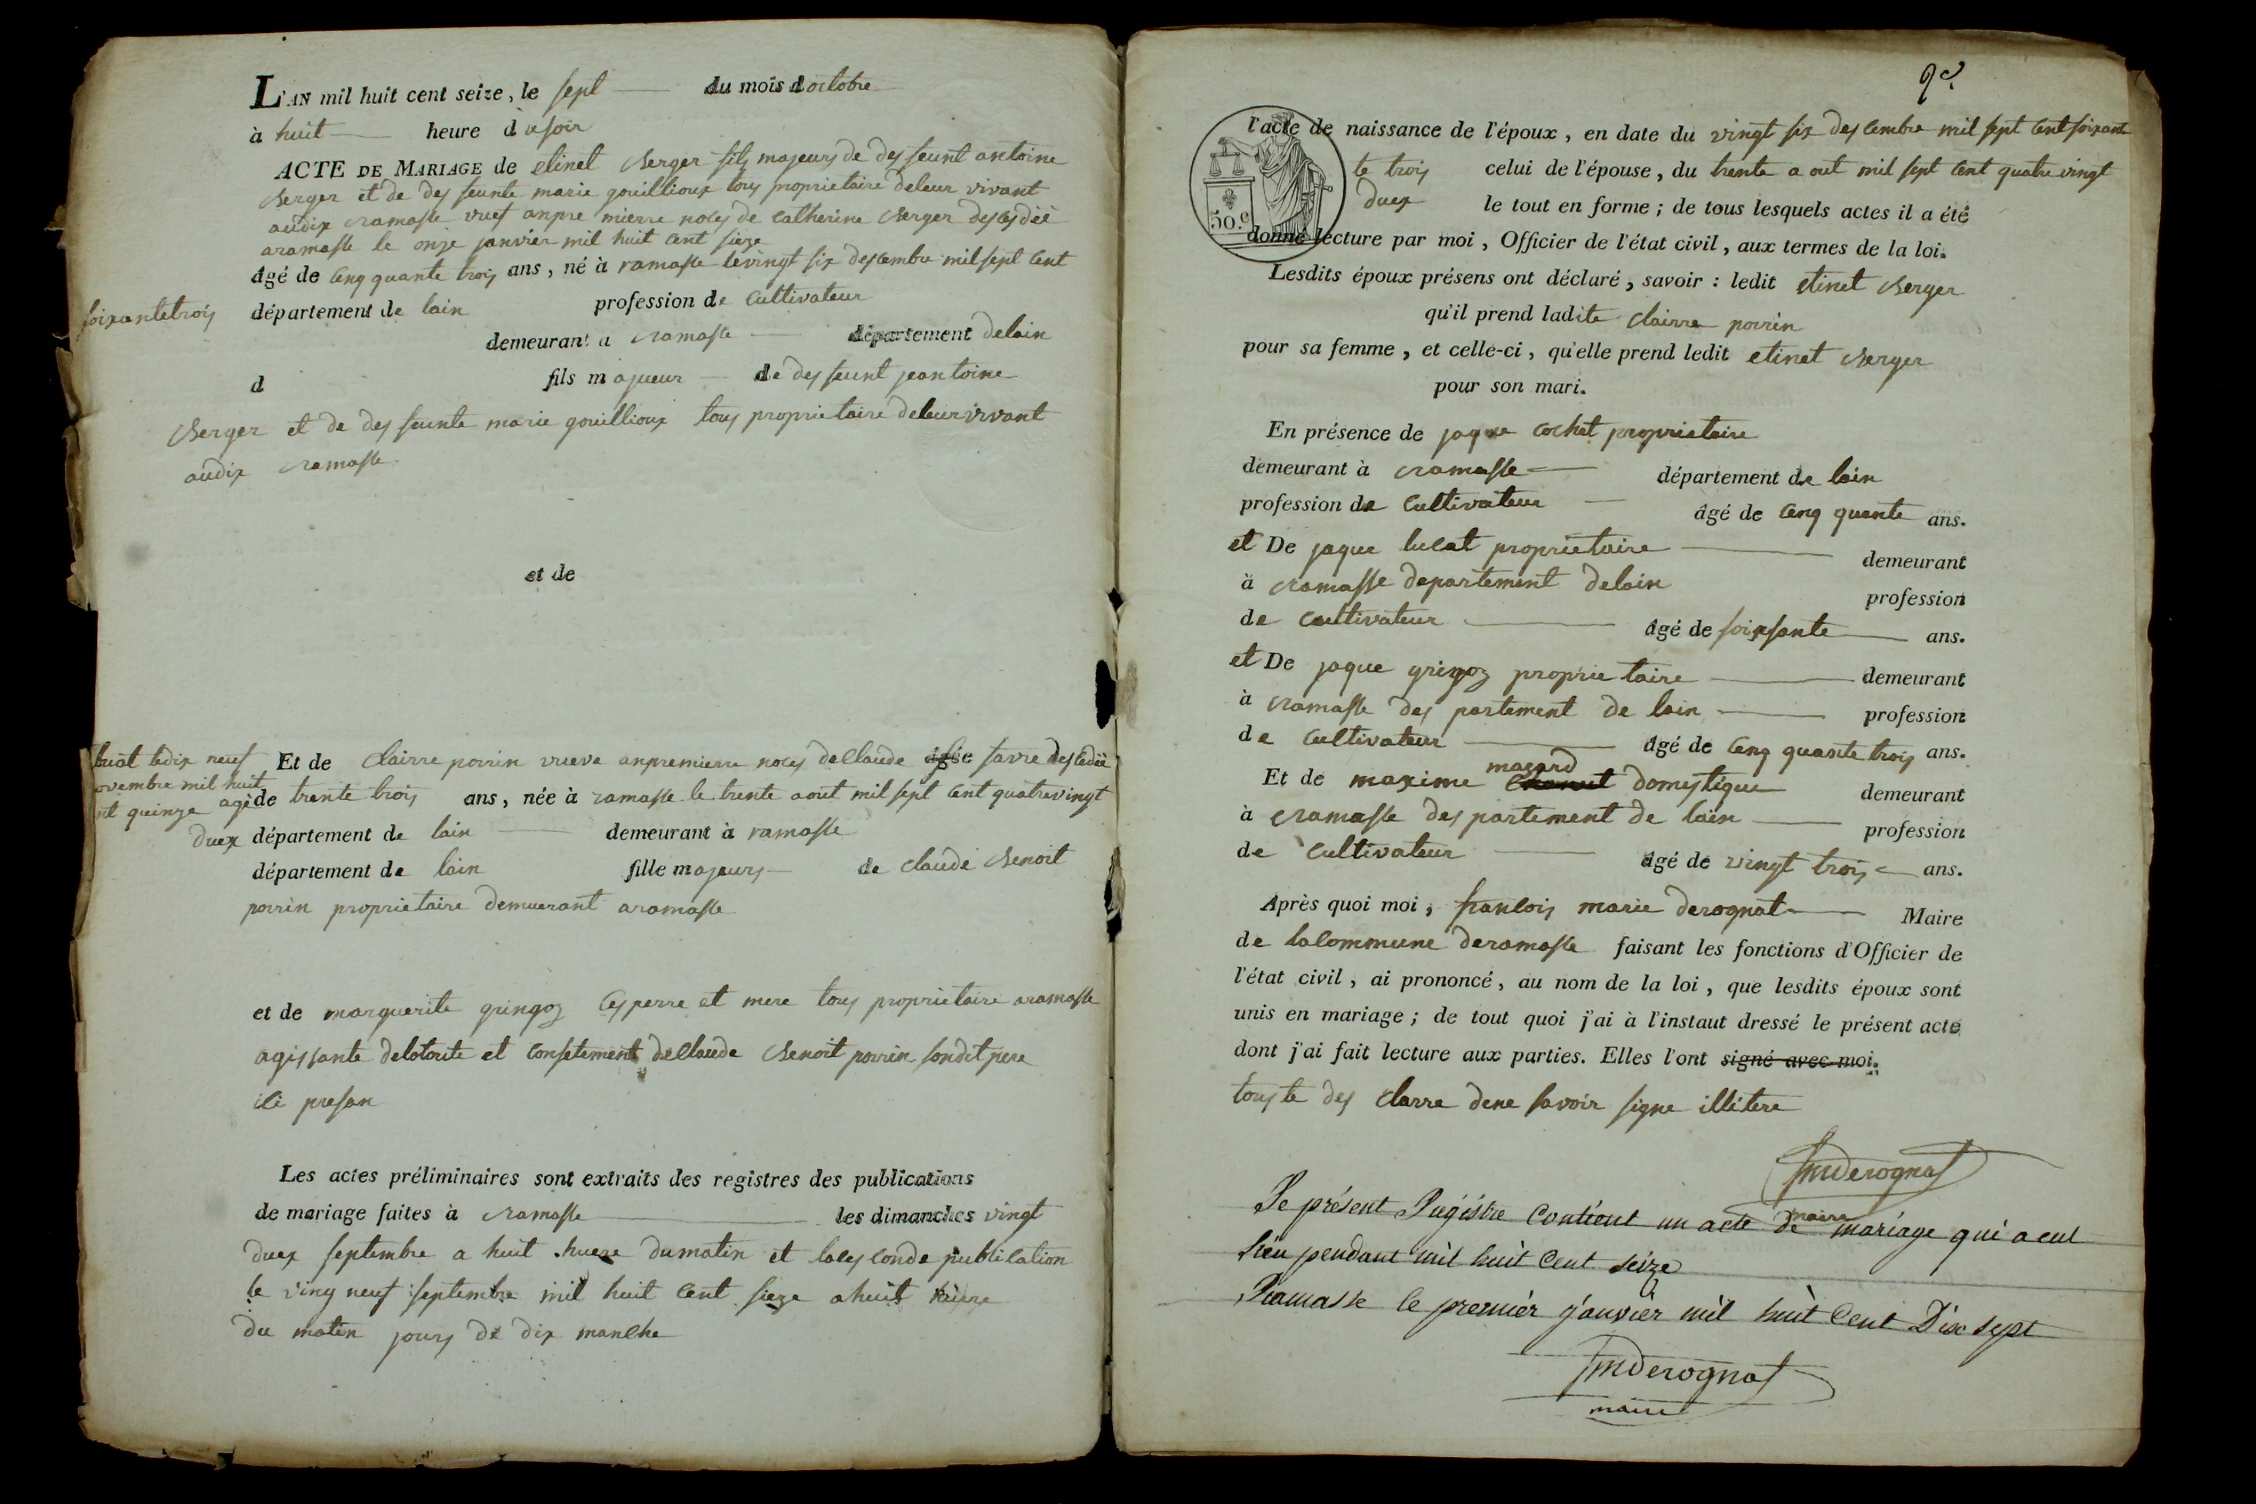 L'AN mil huit cent seize, le sept du mois d octobre
à huit heure d usoir
ACTE DE MARIAGE de etinet Berger fils majeurs de des feunt antoine
Berger et de des feunte marie gouillioux tous proprietaire deleur vivant
audix ramasse vuef anpre mierre noces de Catherine Berger descedéé
aramasse le onze janvier mil huit Cent sieze
âgé de Cenq quante trois ans, né à ramasse le vingt six descembre mil sept Cent
soixantetrois département de lain profession de Cultivateur
demeurant a ramasse département delain
d fils majueur de des feunt jeantoine
Berger et de des feunte marie gouillioux tous proprietaire deleurvivant
audix ramasse
et de
Et de Clairre poirin vueve anpremierre noces deClaude âgée favre desCedéé
ledix neuf
ovembre mil huit
nt quinze agé de trente trois ans, née à ramasse le trente aout mil sept Cent quatrevingt
duex département de lain demeurant à ramasse
département de lain fille majeurs de Claude Benoit
poirin proprietaire demuerant aramasse
et de marguerite gringoz Ces perre et mere tous proprietaire aramasse
agissante delotorite et Consetement deClaude Benoit poirin sondit pere
ici presan
Les actes préliminaires sont extraits des registres des publications
de mariage faites à ramasse les dimanches vingt
duex septembre a huit huere dumatin et laces conde publication
le ving neuf septembre mil huit Cent sieze ahuit huere
du matin jours de dix manche
l'acte de naissance de l'époux, en date du vingt six des Cembre mil sept Cent soixant
te trois celui de l'épouse, du trente a out mil sept Cent quatre vingt
duex le tout en forme; de tous lesquels actes il a été
50.c
donné lecture par moi, Officier de l'état civil, aux termes de la loi.
Lesdits époux présens ont déclaré, savoir : ledit etinet Berger
qu'il prend ladite Clairre poirin
pour sa femme, et celle-ci, qu'elle prend ledit etinet Berger
pour son mari.
En présence de jaque Cochet proprietaire
demeurant à ramasse département de lain
profession de Cultivateur âgé de Cenq quente ans.
et De jaque lucat proprietaire demeurant
à ramasse departement delain profession
de Cultivateur âgé de soixsante ans.
et De jaque gringoz proprie taire demeurant
à ramasse des partement de lain profession
de Cultivateur âgé de Cenq quante trois ans.
mazard
Et de maxime domestique demeurant
à ramasse des partement de lain profession
de Cultivateur âgé de vingt trois ans.
Après quoi moi, franCois marie derognat Maire
de laCommune deramasse faisant les fonctions d'Officier de
l'état civil, ai prononcé, au nom de la loi, que lesdits époux sont
unis en mariage; de tout quoi j'ai à l'instaut dressé le présent acte
dont j'ai fait lecture aux parties. Elles l'ont signé avec moi.
tous te des Clarre dene savoir signe illitere
fmderognat
maire
Le présent Régistre Contient un acte de mariage qui a eut
lieu pendant mil huit Cent seize
Ramasse le premièr janvièr mil huit Cent Dix sept
fmderognat
maire